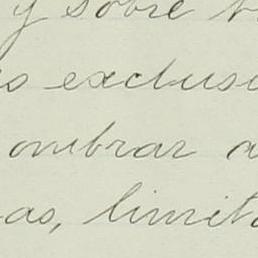 y sobre
s exclusi
ombrar a
as, limit